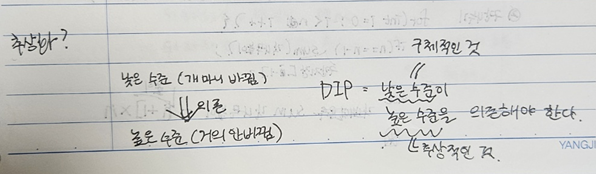 추상화?
낮은 수준 (개 마니 바뀜)
⇓ 의존
높은 수준 (거의 안바뀜)
구체적인 것
DIP = 낮은 수준이
높은 수준을 의존해야 한다.
↳ 추상적인 것.
YANGJI